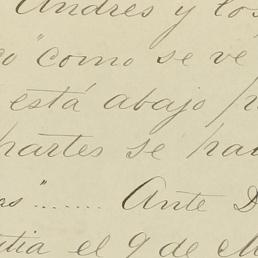 Andres y los
"como se ve
está abajo
partes se
" ...... Ante D
el 9 de